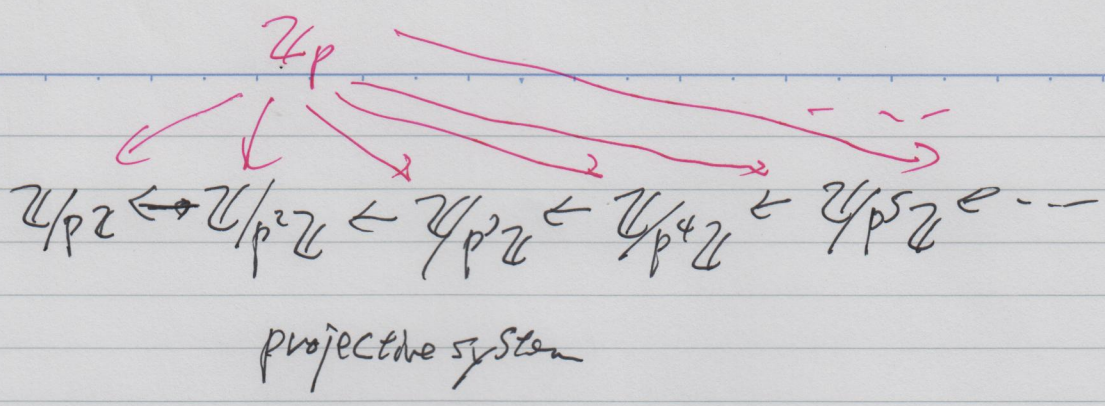 ℤp
ℤ/pℤ ← ℤ/p²ℤ ← ℤ/p³ℤ ← ℤ/p⁴ℤ ← ℤ/p⁵ℤ ← ---
projective system